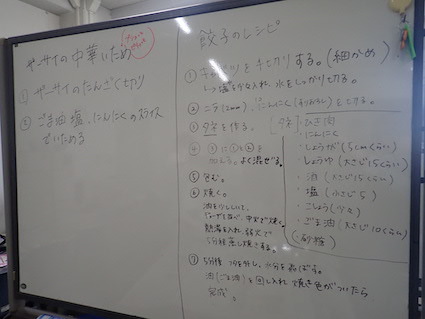 ザーサイの中華いため
① ザーサイのたんざく切り
② ごま油、塩、にんにくのスライス
でいためる
餃子のレシピ
① キャベツを千切りする。(細かめ)
塩を少々入れ、水をしっかり切る。
② ニラ(2mm)、にんにく
を切る。
③ タネを作る。
④ ③に①と②を
加える。よく混ぜる。
⑤ 包む。
⑥ 焼く。
油を少ししいて、
中火で焼く。
熱湯を入れ、弱火で
5分程蒸し焼きする。
⑦ 5分後、フタを外し、水分を飛ばす。
油(ごま油)を回し入れ、焼き色がついたら
完成。
(タネ) ひき肉
・にんにく
・しょうが(5cmくらい)
・しょうゆ(大さじ1.5くらい)
・酒(大さじ1.5くらい)
・塩(小さじ5)
・こしょう(少々)
・ごま油(大さじ10くらい)
(砂糖)